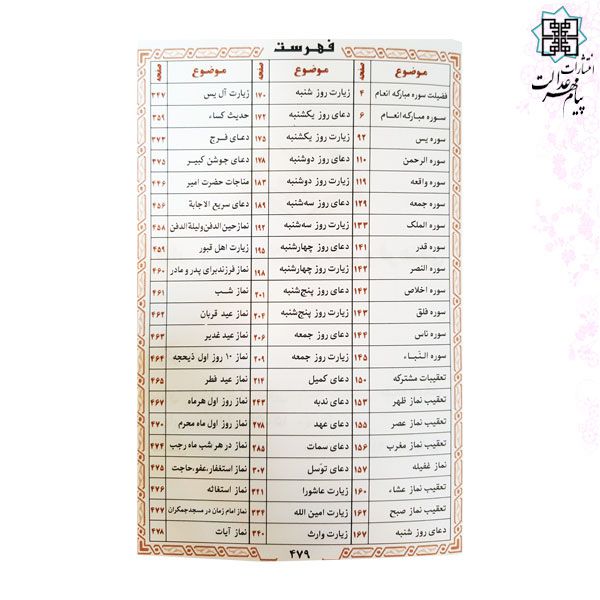 انتشارات
پیام مهر عدالت
فهرست
موضوع صفحه موضوع صفحه موضوع صفحه
فضیلت سوره مبارکه انعام ۴ زیارت روز شنبه ۱۷۰ زیارت آل یس ۳۴۷
سوره مبارکه انعـام ۶ دعای روز یکشنبه ۱۷۲ حدیث کساء ۳۵۹
سوره یس ۹۲ زیارت روز یکشنبه ۱۷۵ دعـای فـرج ۳۷۳
سوره الرحمن ۱۱۰ دعای روز دوشنبه ۱۷۸ دعای جوشن کبیـر ۳۷۵
سوره واقعه ۱۱۹ زیارت روز دوشنبه ۱۸۳ مناجات حضرت امیر ۴۴۶
سوره جمعه ۱۲۹ دعای روز سه‌شنبه ۱۸۹ دعای سریع الاجابة ۴۵۶
سوره الملک ۱۳۳ زیارت روز سه‌شنبه ۱۹۲ نمازحین الدفن‌ولیلة‌الدفن ۴۵۸
سوره قدر ۱۴۱ دعای روز چهارشنبه ۱۹۵ زیارت اهل قبور ۴۵۹
سوره النصر ۱۴۲ زیارت روز چهارشنبه ۱۹۸ نماز فرزندبرای پدر و مادر ۴۶۰
سوره اخلاص ۱۴۲ دعای روز پنج‌شنبه ۲۰۱ نماز شـب ۴۶۱
سوره فلق ۱۴۳ زیارت روز پنج‌شنبه ۲۰۴ نماز عید قربان ۴۶۲
سوره ناس ۱۴۴ دعای روز جمعه ۲۰۶ نماز عید غدیر ۴۶۳
سوره النّبـاء ۱۴۵ زیارت روز جمعه ۲۰۹ نماز ۱۰ روز اول ذیحجه ۴۶۴
تعقیبات مشترکه ۱۵۰ دعای کمیل ۲۱۴ نماز عید فطر ۴۶۵
تعقیب نماز ظهر ۱۵۳ دعای ندبه ۲۴۳ نماز روز اول هرماه ۴۶۷
تعقیب نماز عصر ۱۵۵ دعای عهد ۲۷۸ نماز روز اول ماه محرم ۴۷۰
تعقیب نماز مغرب ۱۵۶ دعای سمات ۲۸۵ نماز در هر شب ماه رجب ۴۷۴
نماز غفیله ۱۵۷ دعای توّسل ۳۰۷ نماز استغفار،عفو،حاجت ۴۷۵
تعقیب نماز عشاء ۱۶۰ زیارت عاشورا ۳۲۱ نماز استغاثه ۴۷۶
تعقیب نماز صبح ۱۶۲ زیارت امین الله ۳۳۴ نماز امام زمان در مسجدجمکران ۴۷۷
دعای روز شنبه ۱۶۷ زیارت وارث ۳۴۰ نماز آیات ۴۷۸
۴۷۹